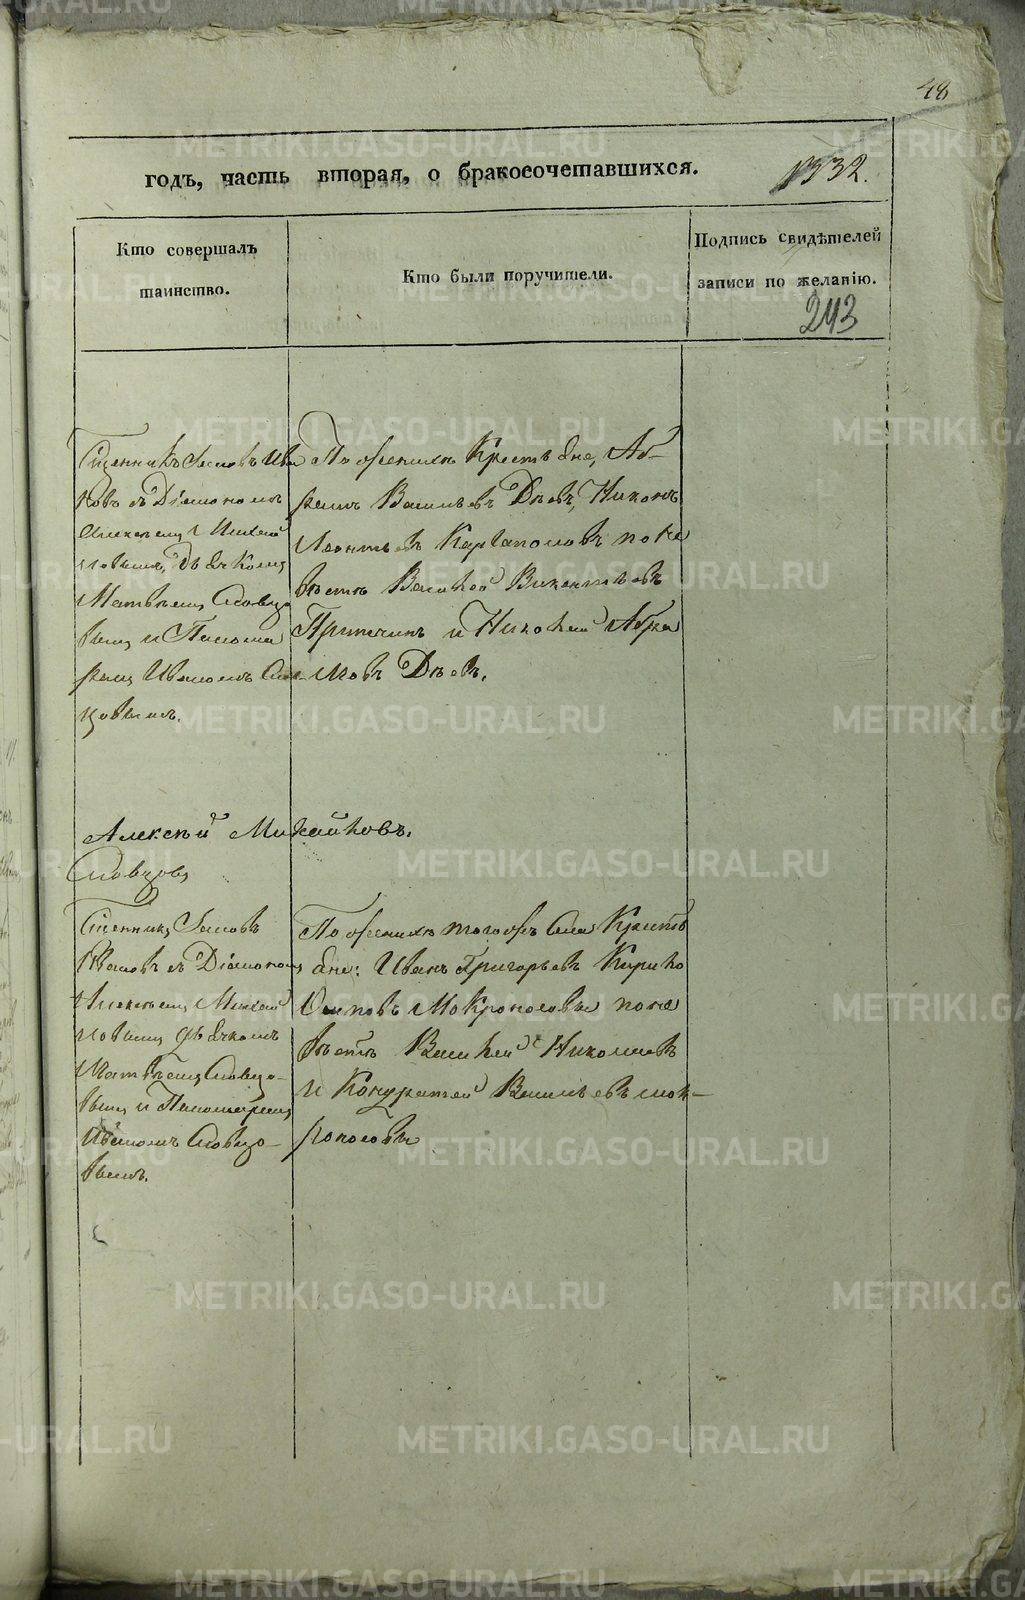 48
годъ, часть вторая, о бракосочетавшихся.
1332.
Кто совершалъ
таинство.
Кто были поручители.
Подпись свидѣтелей
записи по желанію.
243
Сщенникъ Іаковъ Ива
ковъ съ Діакономъ
Алексѣемъ Михай
ловымъ, Дьячкомъ
Матвѣемъ Словцо
вымъ и Понома
ремъ Иваномъ Слов
цовымъ.
По женихѣ Крестьяне, Аб-
рамъ Васильевъ Дѣевъ, Никонъ
Леонтьевъ Карпаполовъ по не
вѣстѣ Василей Викентьевъ
Притчинъ и Николай Абра
мовъ Дѣевъ.
Алексѣй Михайловъ.
Словцовъ
Сщенникъ Іаковъ
Иваковъ съ Діакономъ
Алексѣемъ Михай
ловымъ Дьячкомъ
Матвѣемъ Словцо-
вымъ и Пономаремъ
Иваномъ Словцо-
вымъ.
По женихѣ тогожъ Села Кресть
яне: Иванъ Григорьевъ Кирило
Осиповъ Мокроносовы по не
вѣстѣ Василей Николаевъ
и Кондратей Васильевъ Мок-
роносовы